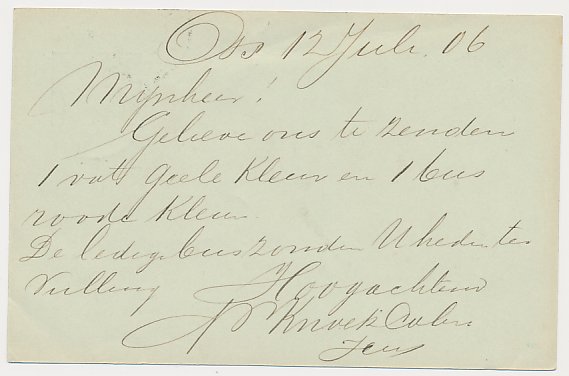 Oss 12 Juli. 06
Mijnheer!
Gelieve ons te zenden
1 vat Geele Kleur en 1 bus
roode Kleur.
De ledige bus zonden U heden ter
vulling
Hoogachtend